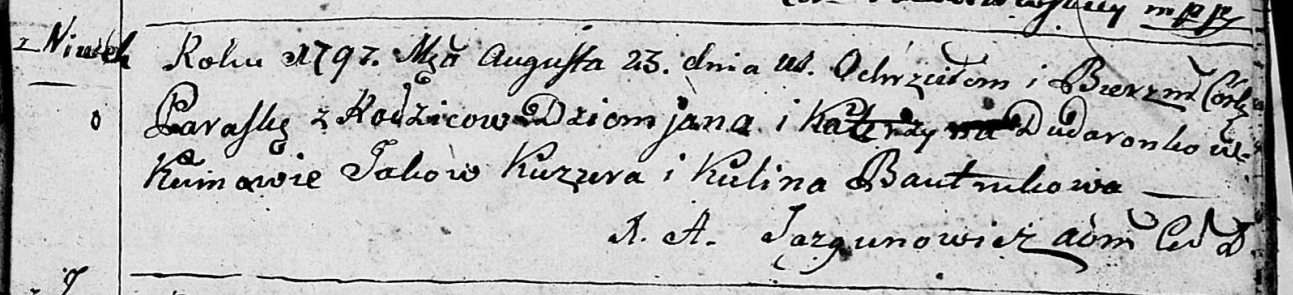 mppr
z Niwek
Roku 1797. Mca Augusta 23. dnia ut. Ochrzciłem i Bierzm Corkę
Paraskę z Rodzicow Dziemjana i Katerzyna Dudaronkow.
Kumowie Jakow Kuzura i Kulina Bautrukowa
A. Jazgunowicz adm